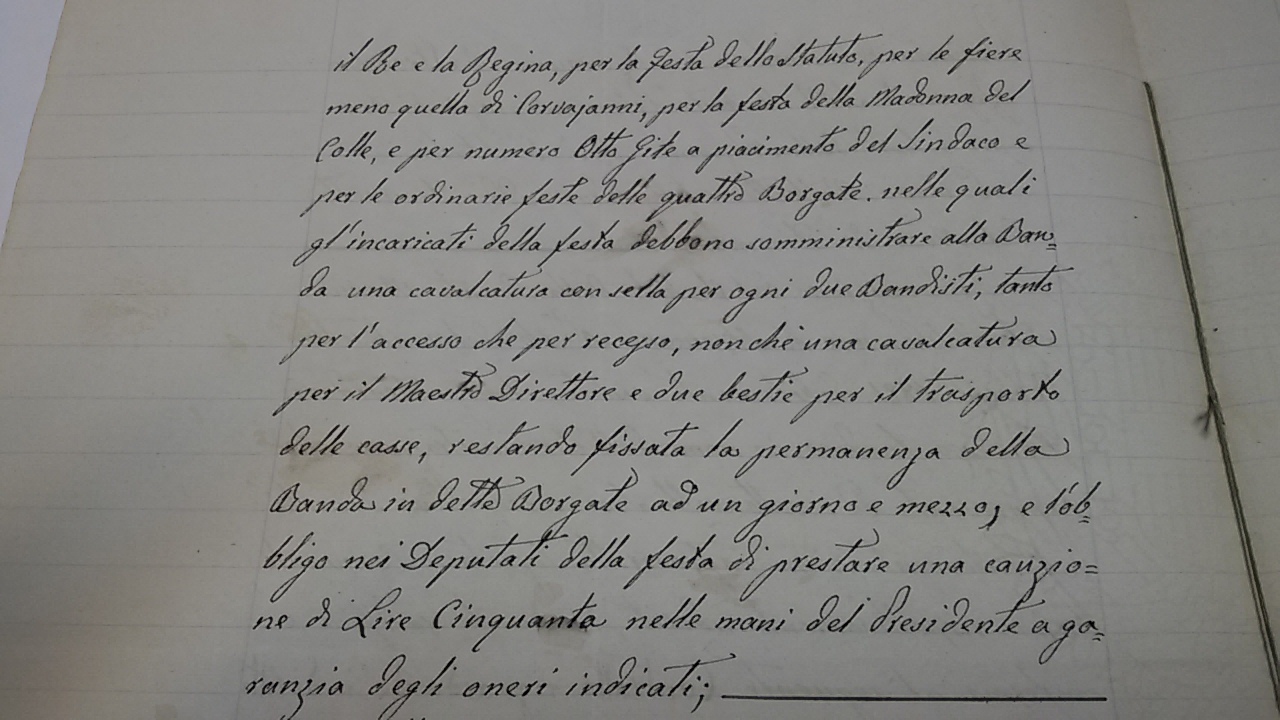 il Re e la Regina, per la festa dello Statuto, per le fiere
meno quella di Corvajanni, per la festa della Madonna del
Colle, e per numero Otto Gite a piacimento del Sindaco e
per le ordinarie feste delle quattro Borgate. nelle quali
gl'incaricati della festa debbono somministrare alla Ban=
da una cavalcatura con sella per ogni due Bandisti, tanto
per l'accesso che per recesso, nonchè una cavalcatura
per il Maestro Direttore e due bestie per il trasporto
delle casse, restando fissata la permanenza della
Banda in dette Borgate ad un giorno e mezzo, e l'ob=
bligo nei Deputati della festa di prestare una cauzio=
ne di Lire Cinquanta nelle mani del Presidente a ga=
ranzia degli oneri indicati;